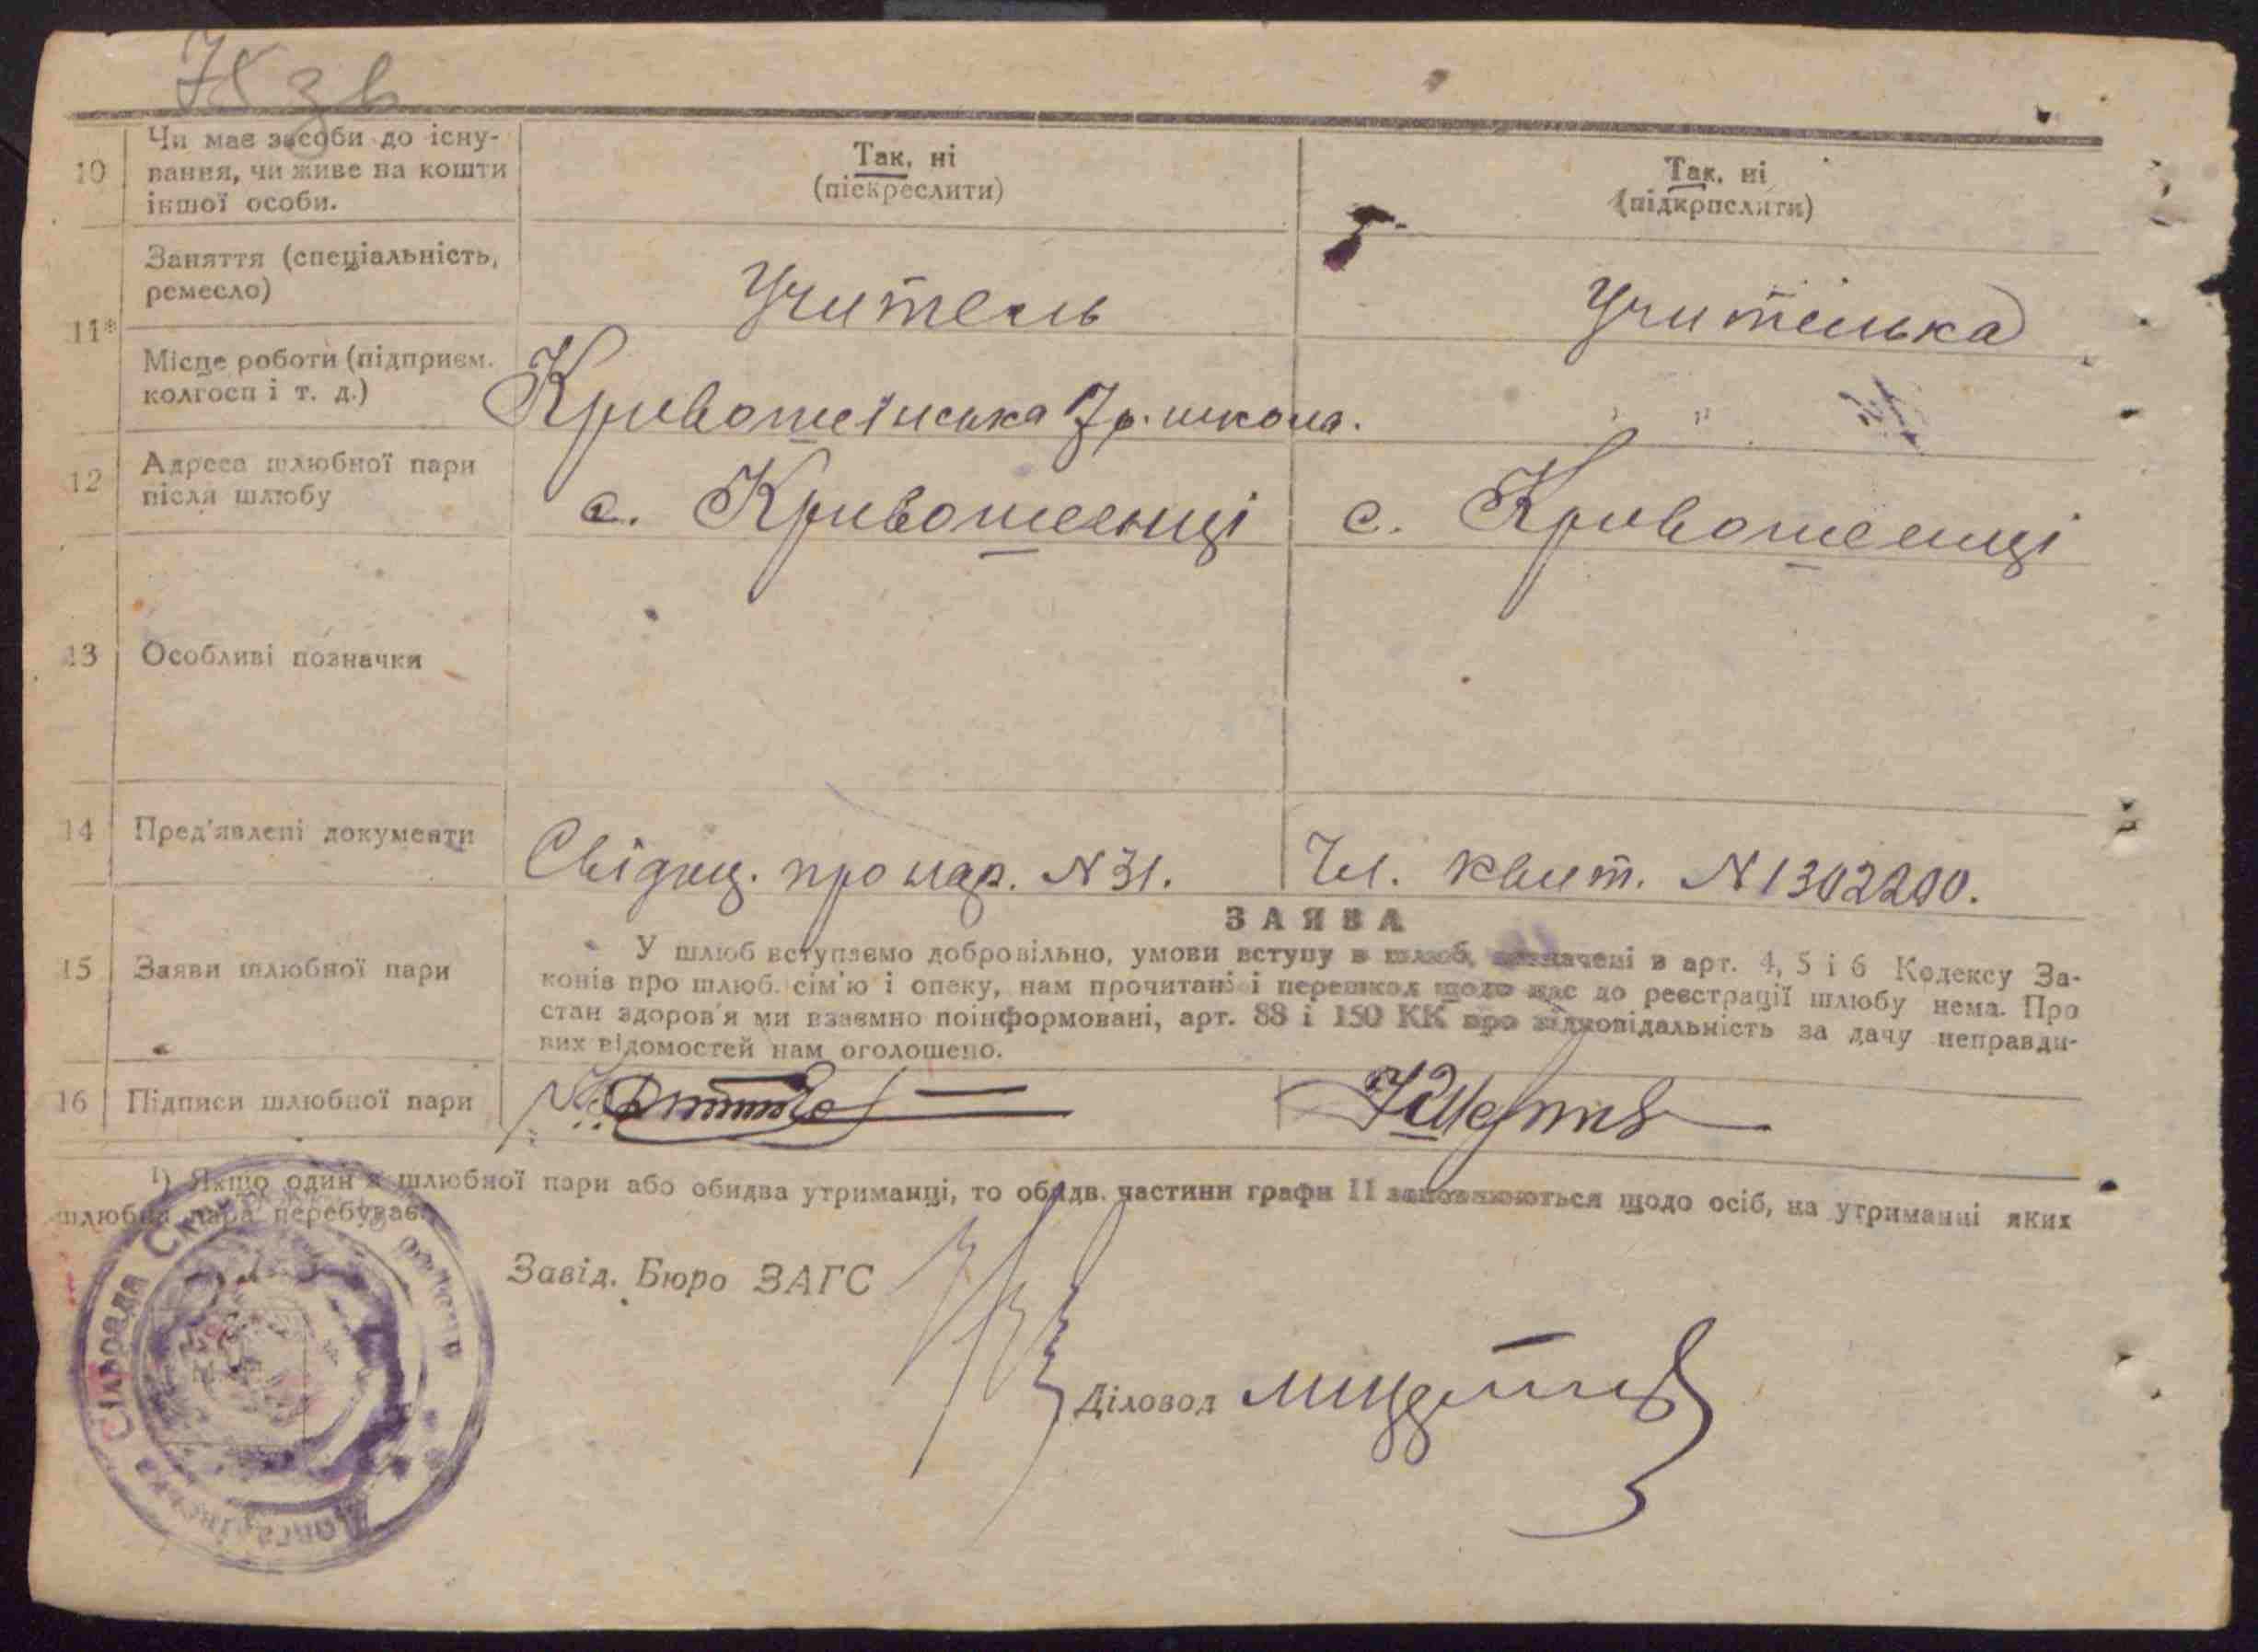 78 зв
10
Чи має засоби до існу-
вання, чи живе на кошти
іншої особи.
Так, ні
(піскреслити)
Так, ні
(підкрпслити)
11*
Заняття (спеціальність,
ремесло)
Учитель
Учителька
Місце роботи (підприєм.
колгосп і т. д.)
Кривошеїнська 7р. школа.
" "
12
Адреса шлюбної пари
після шлюбу
с. Кривошеенці
с. Кривошеенці
13
Особливі позначки
14
Пред'явлені документи
Свідоц. про нар. N 31.
Чл. квит. N 1302200.
15
Заяви шлюбної пари
ЗАЯВА
У шлюб вступаємо добровільно, умови вступу в шлюб, зазначені в арт. 4, 5 і 6 Кодексу За-
конів про шлюб. сім'ю і опеку, нам прочитані і перешкод щодо нас до реєстрації шлюбу нема. Про
стан здоров'я ми взаємно поінформовані, арт. 88 і 150 КК про відповідальність за дачу неправди-
вих відомостей нам оголошено.
16
Підписи шлюбної пари
¹) Якщо один з шлюбної пари або обидва утриманці, то обидв. частини графи 11 заповнюються щодо осіб, на утриманні яких
шлюбна пара перебуває.
Завід. Бюро ЗАГС
Діловод